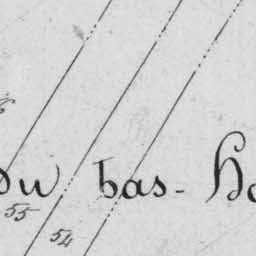 du bas-
55
54